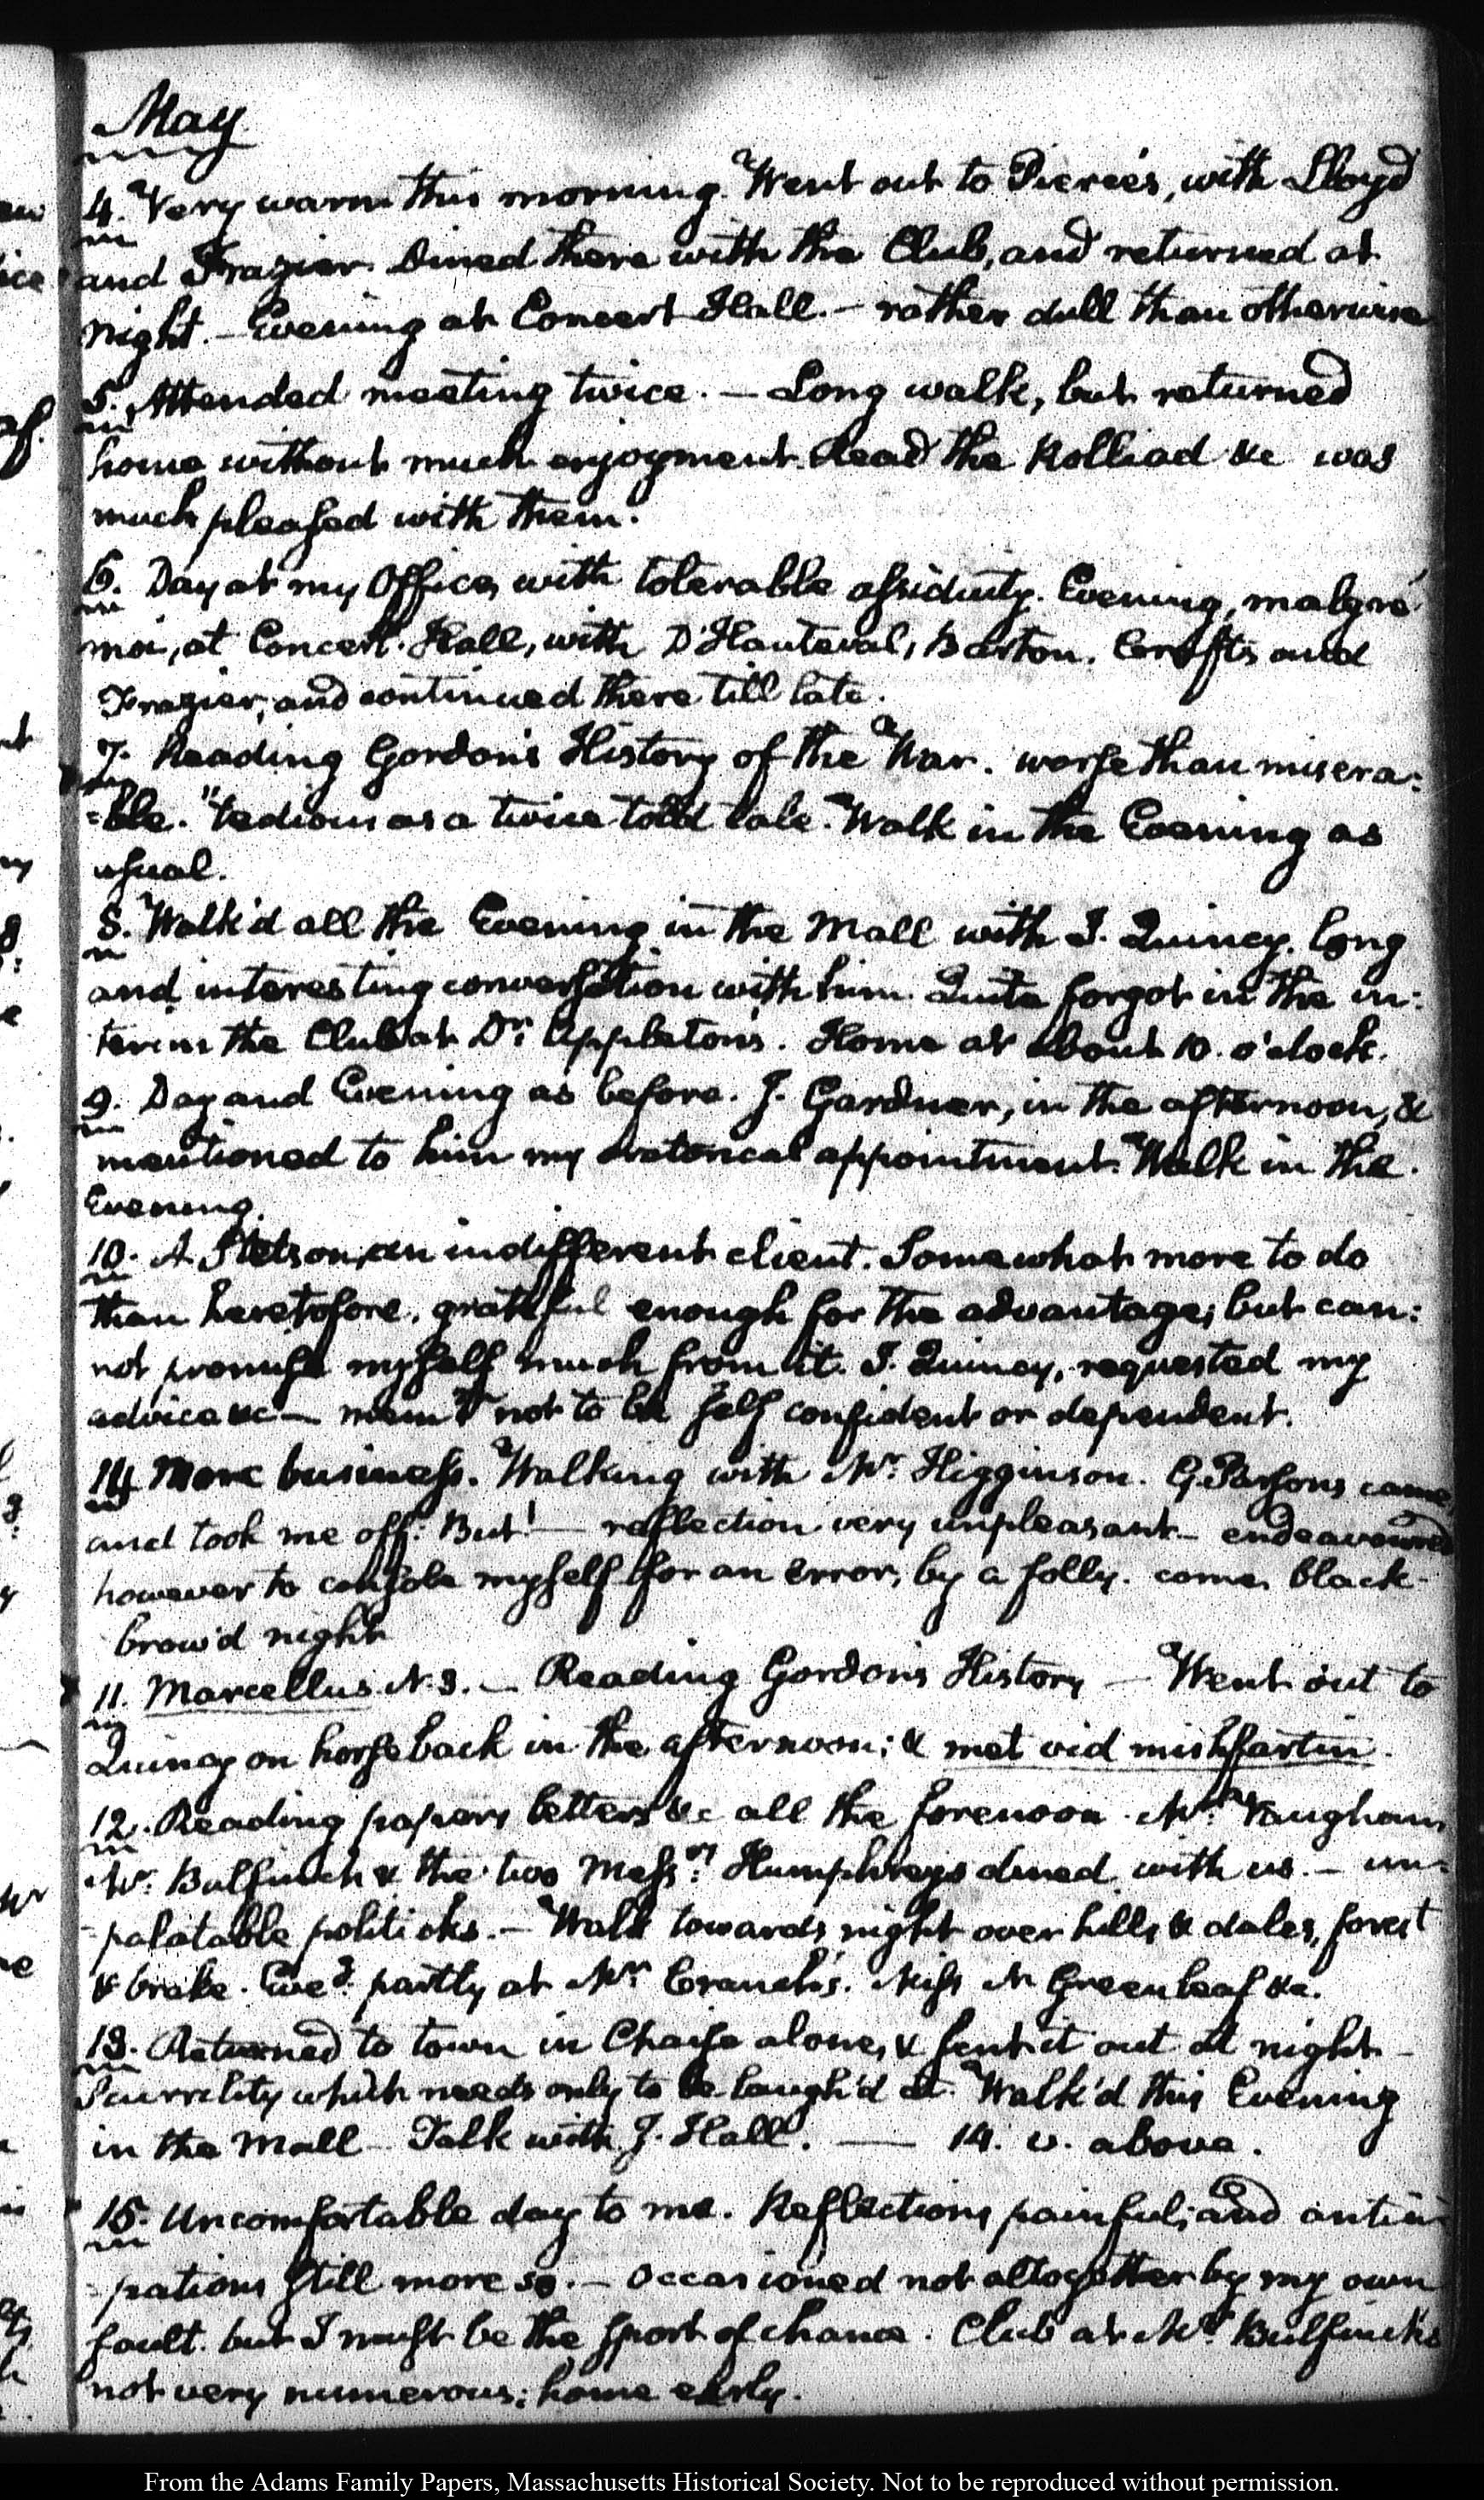 May
4. Very warm this morning. Went out to Pierce's, with Lloyd
and Frazier. Dined there with the Club, and returned at
night. — Evening at Concert Hall. — rather dull than otherwise
5. Attended meeting twice. — Long walk, but returned
home without much enjoyment. Read the Rolliad &c was
much pleased with them.
6. Day at my Office, with tolerable assiduity. Evening, malgré
moi, at Concert Hall, with D'Hauteval, Barton, Crafts and
Frazier, and continued there till late.
7. Reading Gordon's History of the War. worse than misera:
=ble. "tedious as a twice told tale. Walk in the Evening as
usual.
8. Walk'd all the Evening in the Mall with J. Quincy. long
and interesting conversation with him. Quite forgot in the in:
terim the Club at Dr. Appleton's. Home at about 10. o'clock.
9. Day and Evening as before. J. Gardner, in the afternoon, &
mentioned to him my oratorical appointment. Walk in the
Evening.
10. A Stetson, an indifferent client. Somewhat more to do
than heretofore, grateful enough for the advantage; but can:
not promise myself much from it. J. Quincy, requested my
advice &c — mem? not to be self confident or dependent.
14 More business. Walking with Mr. Higginson. G. Parsons came
and took me off: But! — reflection very unpleasant — endeavoured
however to console myself for an error, by a folly. come, black-
brow'd night
11. Marcellus N. 3. — Reading Gordon's History — Went out to
Quincy on horseback in the afternoon; & met vid mishfartin.
12. Reading papers letters &c all the forenoon. Mr. Vaughan,
Mr. Bulfinch & the two Messrs. Humphreys dined with us. — un:
=palatable politicks. — Walk towards night over hills & dales, forest
& brake. Eveg. partly at Mr. Cranch's. Miss N Greenleaf &c.
13. Returned to town in Chaise alone, & sent it out at night —
Scurrility which needs only to be laugh'd at. Walk'd this Evening
in the Mall — Talk with J. Hall. — 14. v. above.
15. Uncomfortable day to me. Reflections painful; and antici
=pations still more so. — Occasioned not altogether by my own
fault. but I must be the sport of chance. Club at Mr. Bulfinch's
not very numerous; home early.
From the Adams Family Papers, Massachusetts Historical Society. Not to be reproduced without permission.